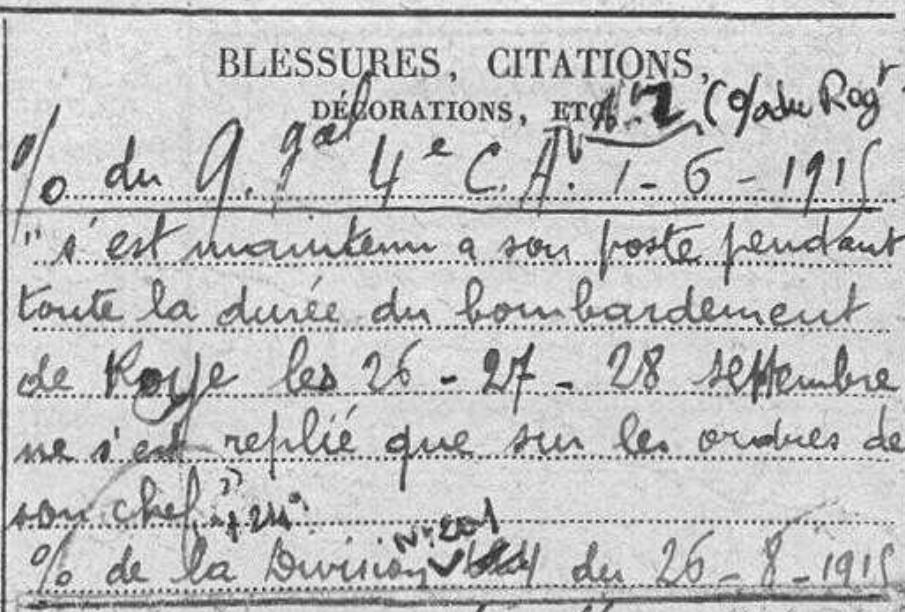 BLESSURES, CITATIONS,
DÉCORATIONS, ETC.
(o/o du Regt
o/o du G. gal 4e C.A. 1-6-1915
"s'est maintenu a son poste pendant
toute la durée du bombardement
de Roye les 26-27-28 septembre
ne s'est replié que sur les ordres de
son chef"
o/o de la Division du 26-8-1915